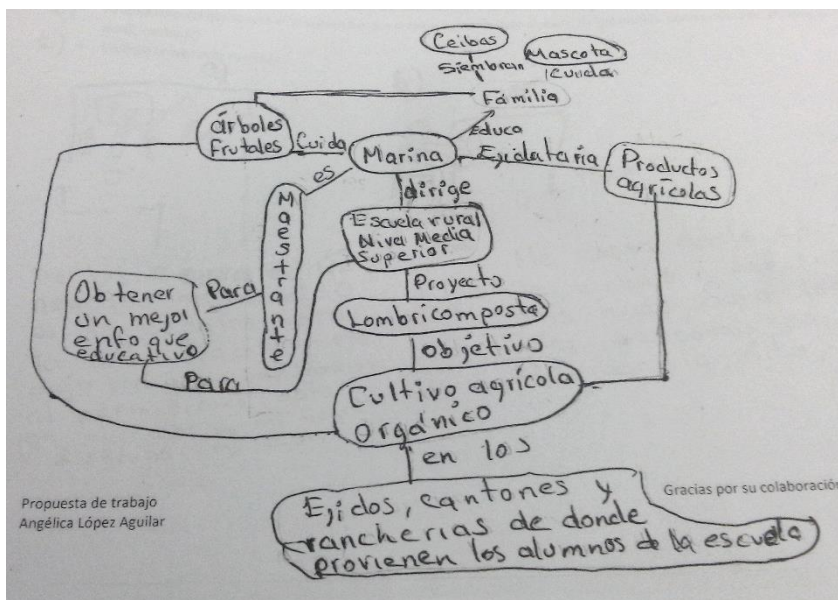 Ceibas
Siembran
Mascota
cuidar
Familia
Educa
árboles
Frutales
Cuida
Marina
Ejidataria
Productos
agrícolas
es
dirige
Maestrante
Escuela rural
Nivel Media
Superior
Para
Obtener
un mejor
enfoque
educativo
Para
Proyecto
Lombricomposta
Objetivo
Cultivo agrícola
Orgánico
en los
Ejidos, cantones y
rancherias de donde
provienen los alumnos de la escuela
Propuesta de trabajo
Angélica López Aguilar
Gracias por su colaboración